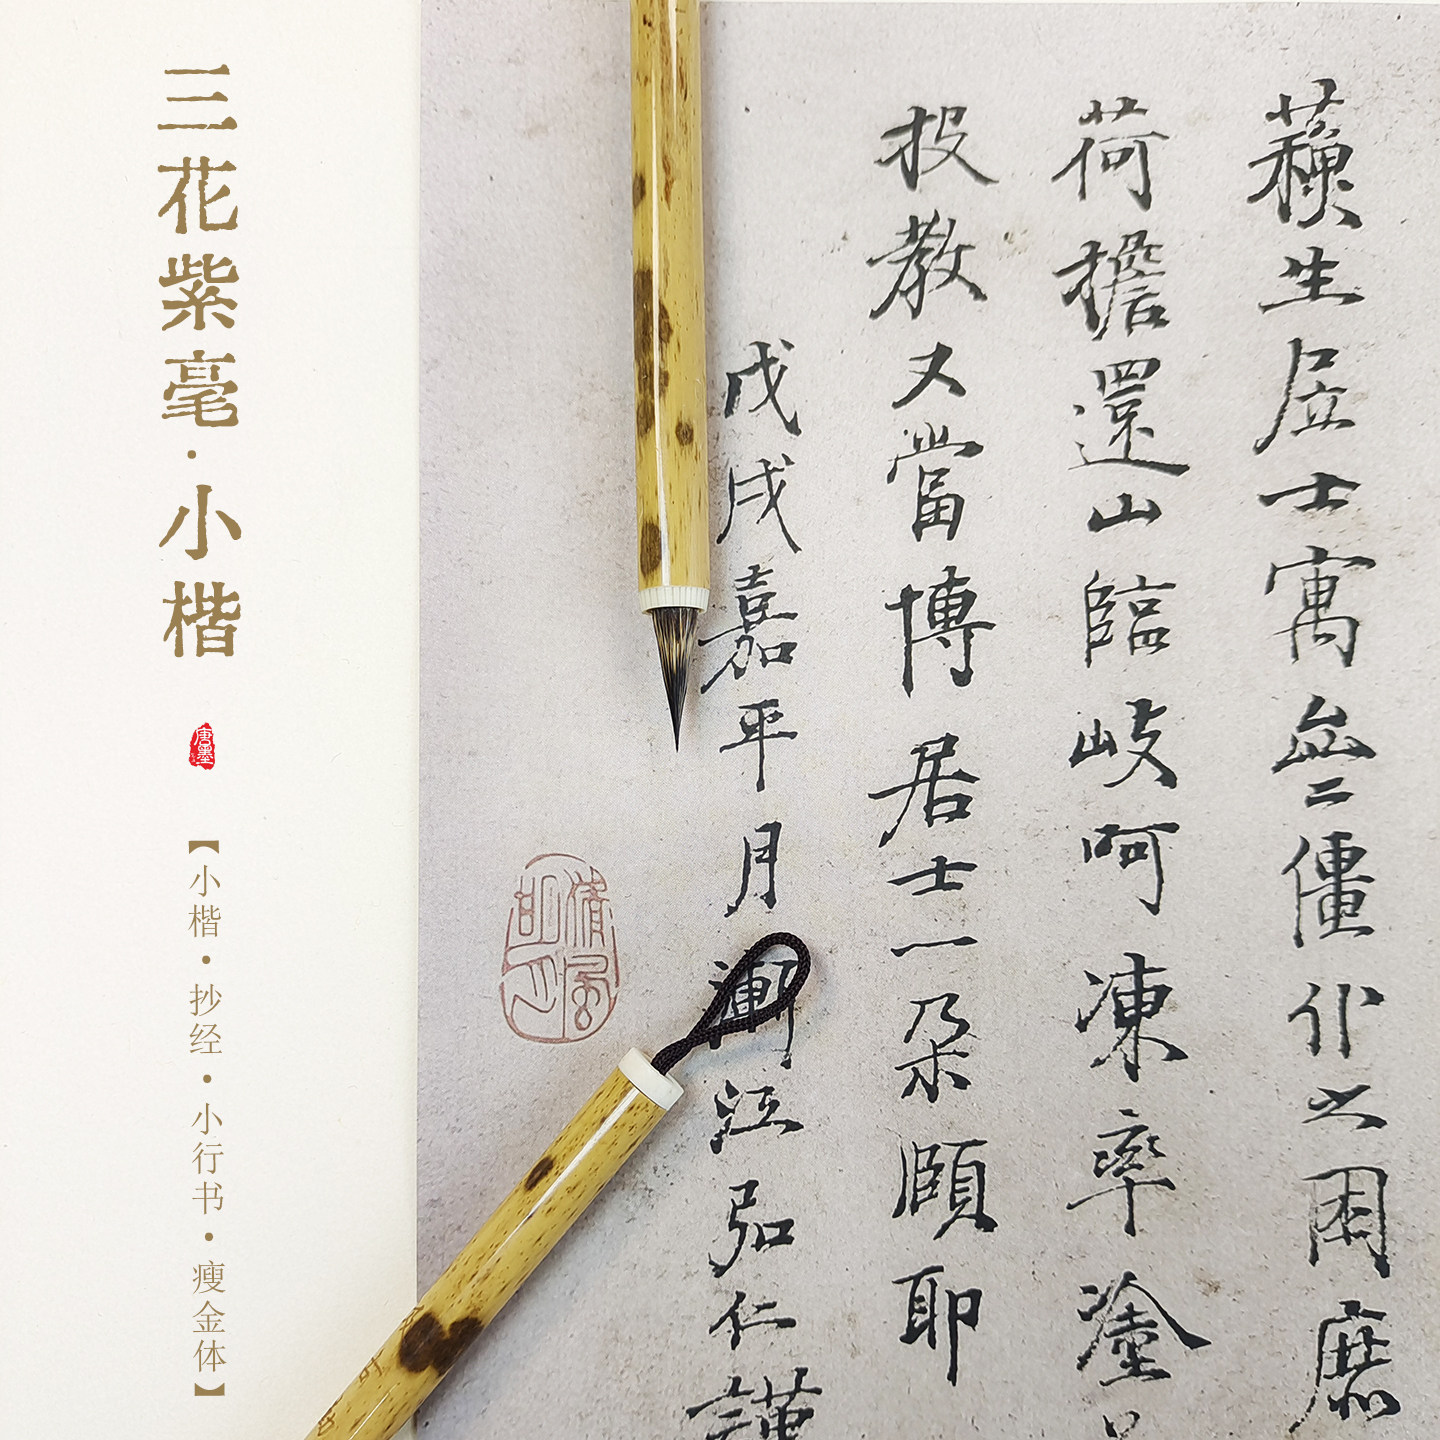 三花紫毫·小楷
唐墨
【小楷·抄经·小行书·瘦金体】
生士寓僵仆之困
荷擔還山臨岐呵凍率塗
投教又當博居士一朵頤耶
戊戌嘉平月漸江弘仁謹